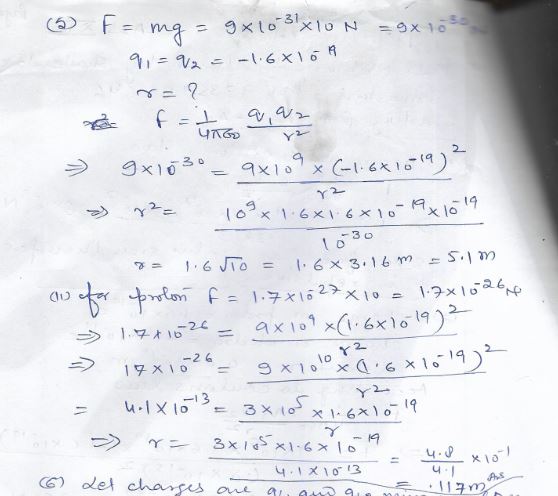 (5) F = mg = 9×10⁻³¹×10 N = 9×10⁻³⁰
q₁ = q₂ = -1.6×10⁻¹⁹
r = ?
f = 1/4π∈₀ q₁q₂/r²
⇒ 9×10⁻³⁰ = 9×10⁹ × (-1.6×10⁻¹⁹)²/r²
⇒ r² = 10⁹×1.6×1.6×10⁻¹⁹×10⁻¹⁹/10⁻³⁰
r = 1.6√10 = 1.6×3.16 m = 5.1m
(11) for proton F = 1.7×10⁻²⁷×10 = 1.7×10⁻²⁶N
⇒ 1.7×10⁻²⁶ = 9×10⁹×(1.6×10⁻¹⁹)²/r²
⇒ 17×10⁻²⁶ = 9×10¹⁰×(1.6×10⁻¹⁹)²/r²
= 4.1×10⁻¹³ = 3×10⁵×1.6×10⁻¹⁹/r
⇒ r = 3×10⁵×1.6×10⁻¹⁹/4.1×10⁻¹³ = 4.8/4.1 ×10⁻¹
= .117m Ans
(6) Let charges are q₁ and